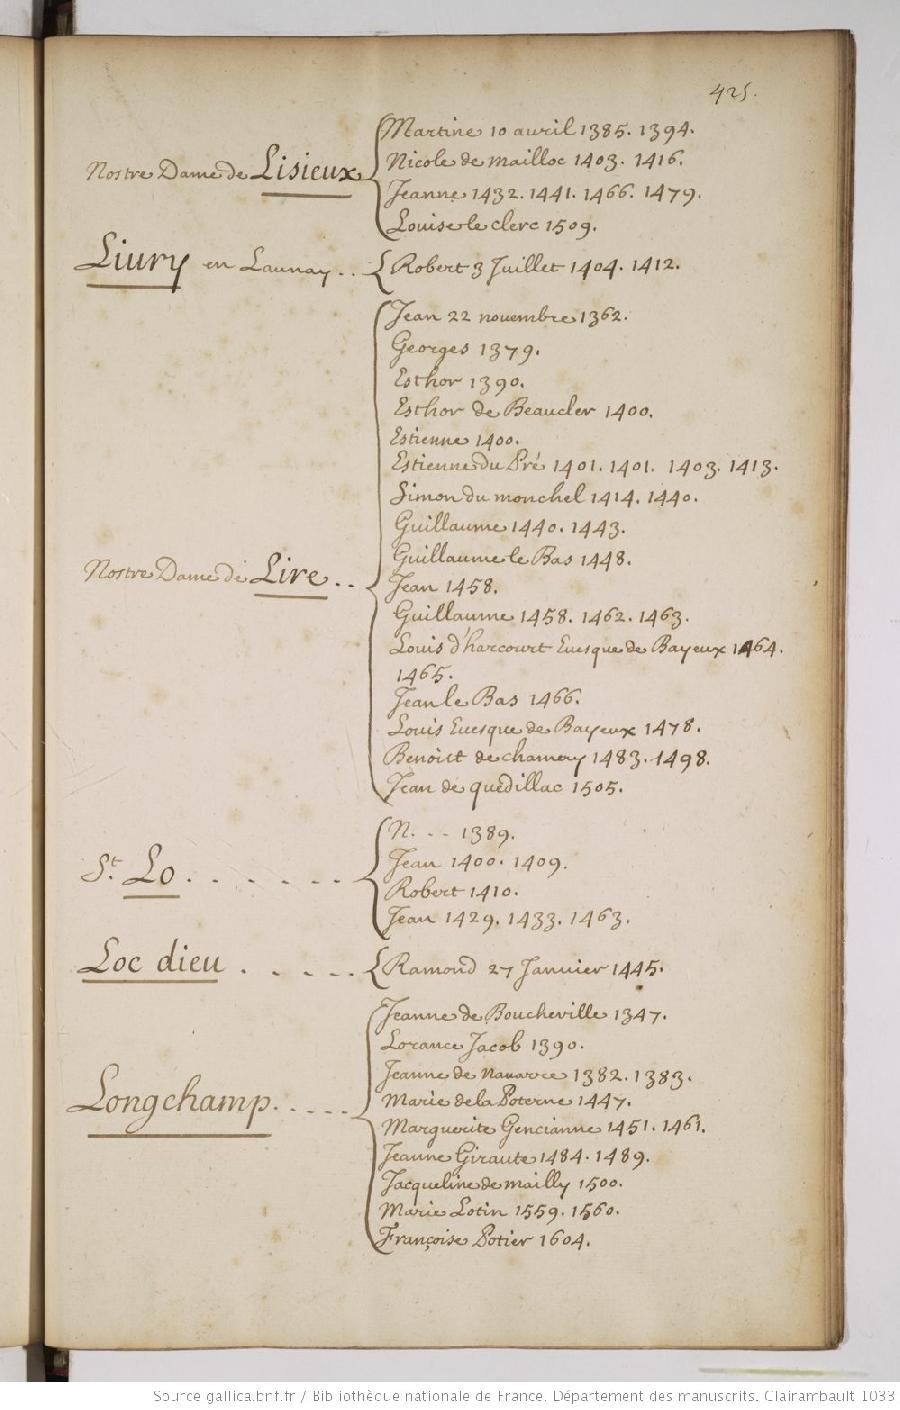 425.
Martine 10 auril 1385. 1394.
Nicole de mailloc 1403. 1416.
Nostre Dame de Lisieux
Jeanne 1432. 1441. 1466. 1479.
Louise le clerc 1509.
Liury en Launay . . Robert 3 Juillet 1404. 1412.
Jean 22 nouembre 1362.
Georges 1379.
Esthor 1390.
Esthor de Beaucler 1400.
Estienne 1400.
Estienne du Pré 1401. 1401. 1403. 1413.
Simon du monchel 1414. 1440.
Guillaume 1440. 1443.
Guillaume le Bas 1448.
Nostre Dame de Lire . .
Jean 1458.
Guillaume 1458. 1462. 1463.
Louis d'harcourt Euesque de Bayeux 1464.
1465.
Jean le Bas 1466.
Louis Euesque de Bayeux 1478.
Benoist de chamery 1483. 1498.
Jean de quedillac 1505.
N. . . . 1389.
Jean 1400. 1409.
St. Lo . . . . . . .
Robert 1410.
Jean 1429. 1433. 1463.
Loc dieu . . . . . Ramond 27 Januier 1445.
Jeanne de Boucheville 1347.
Lorance Jacob 1390.
Jeanne de Nauarre 1382. 1383.
Marie de la Poterne 1447.
Longchamp . . . . .
Marguerite Gencianne 1451. 1461.
Jeanne Giraute 1484. 1489.
Jacqueline de mailly 1500.
Marie Lotin 1559. 1560.
Françoise Potier 1604.
Source gallica.bnf.fr / Bibliothèque nationale de France. Département des manuscrits. Clairambault 1033